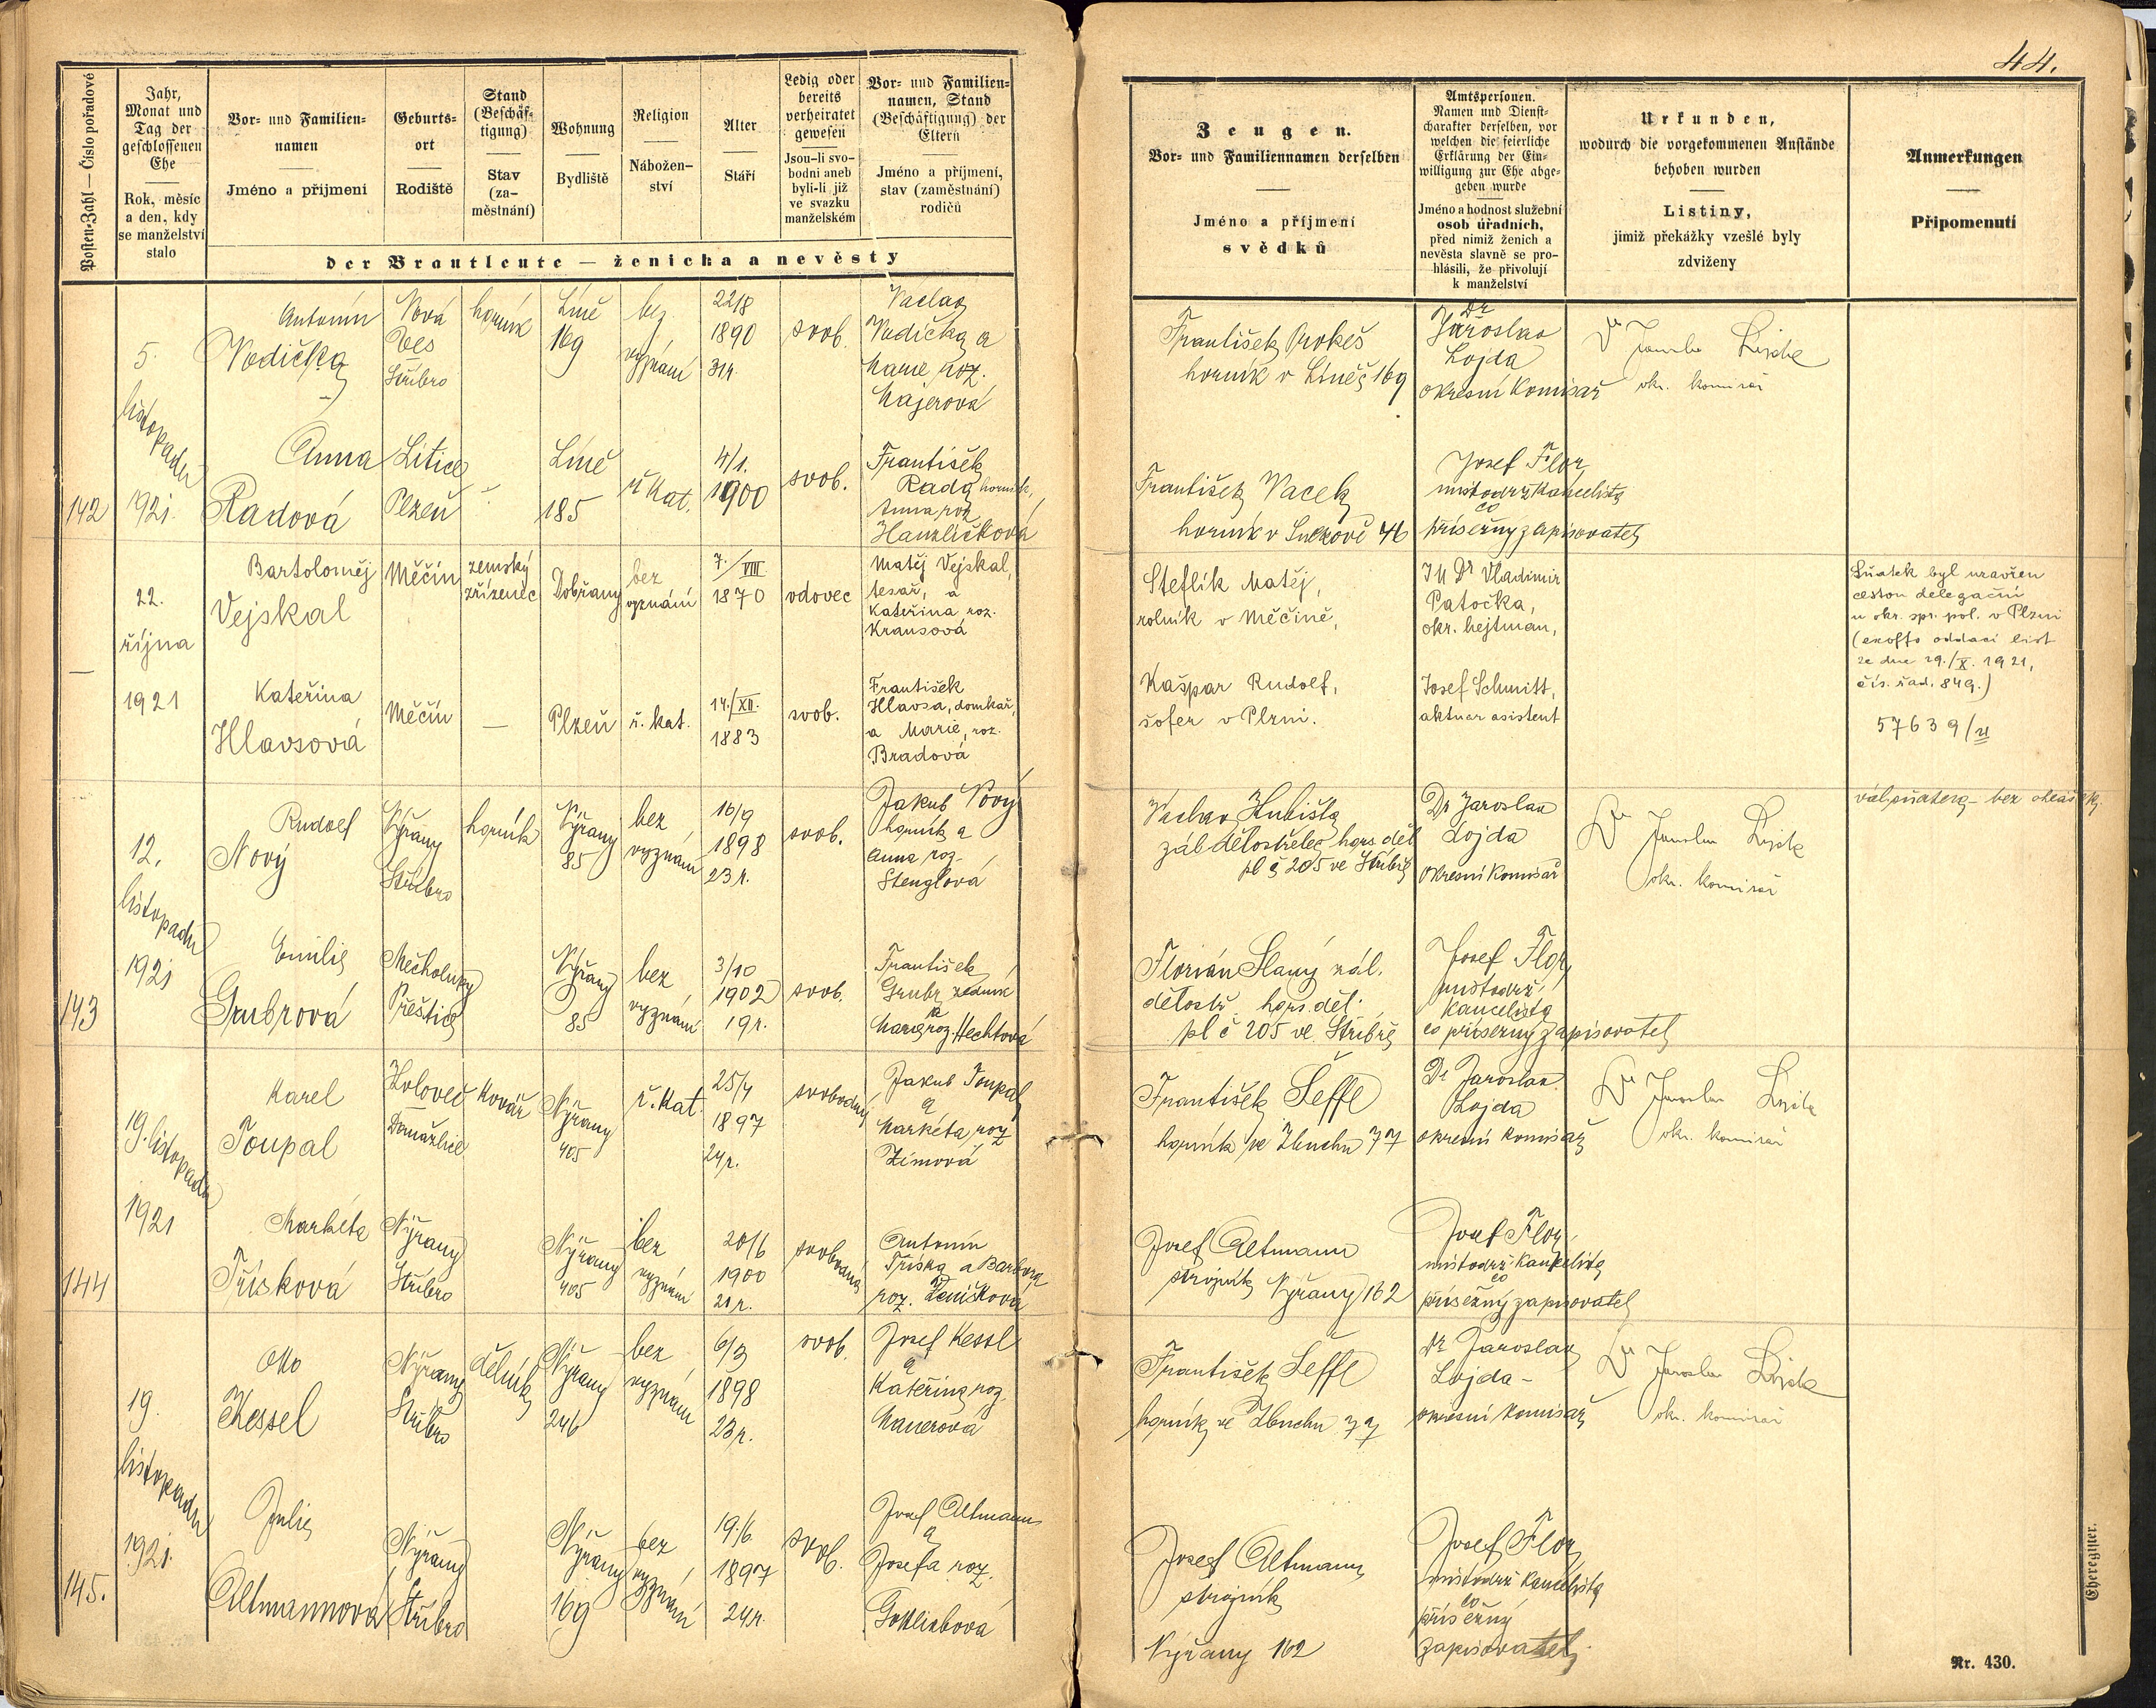 44.
Posten-Zahl — Číslo pořadové
Jahr,
Monat und
Tag der
geschlossenen
Ehe
Rok, měsíc
a den, kdy
se manželství
stalo
Vor- und Familien-
namen
Jméno a příjmení
Geburts-
ort
Rodiště
Stand
(Beschäf-
tigung)
Stav
(za-
městnání)
Wohnung
Bydliště
Religion
Nábožen-
ství
Alter
Stáří
Ledig oder
bereits
verheiratet
gewesen
Jsou-li svo-
bodni aneb
byli-li již
ve svazku
manželském
Vor- und Familien-
namen, Stand
(Beschäftigung) der
Eltern
Jméno a příjmení,
stav (zaměstnání)
rodičů
der Brautleute — ženicha a nevěsty
Zeugen.
Vor- und Familiennamen derselben
Jméno a příjmení
svědků
Amtspersonen.
Namen und Dienst-
charakter derselben, vor
welchen die feierliche
Erklärung der Ein-
willigung zur Ehe abge-
geben wurde
Jméno a hodnost služební
osob úřadních,
před nimiž ženich a
nevěsta slavně se pro-
hlásili, že přivolují
k manželství
Urkunden,
wodurch die vorgekommenen Anstände
behoben wurden
Listiny,
jimiž překážky vzešlé byly
zdviženy
Anmerkungen
Připomenutí
142
5.
listopadu
1921.
Antonín
Vodička
Nová
Ves
Stříbro
horník
Líně
169
bez
vyznání
22/8
1890
31r.
svob.
Vaclav
Vodička a
Marie roz.
Majerová
František Prokeš
horník v Líněč 169
Dr
Jaroslav
Lojda
okresní komisař
Dr Jaroslav Lojda
okr. komisař
Anna
Radová
Litice
Plzeň
Líně
185
ř. kat.
4/1.
1900
svob.
František
Rada horník,
Anna roz
Hanzlíčková
František Vacek
horník v Sulkově 46
Josef Flor
místodrž kancelista
co
přísežný zapisovatel
22.
října
1921
Bartoloměj
Vejskal
Měčín
zemský
zřízenec
Dobřany
bez
vyznání
7./VIII
1870
vdovec
Matěj Vejskal,
tesař, a
Kateřina roz.
Krausová
Steflík Matěj,
rolník v Měčíně,
JUDr Vladimir
Patočka,
okr. hejtman,
Sňatek byl uzavřen
cestou delegační
u okr. spr. pol. v Plzni
(exoffo oddací list
ze dne 29./X. 1921,
čís. řad. 849.)
57639/21
Kateřina
Hlavsová
Měčín
—
Plzeň
ř. kat.
14./XII.
1883
svob.
František
Hlavsa, domkař,
a Marie, roz.
Bradová
Kašpar Rudolf,
šofer v Plzni.
Josef Schmitt,
aktuar asistent
143
12.
listopadu
1921
Rudolf
Nový
Nýřany
Stříbro
horník
Nýřany
85
bez
vyznání
16/9
1898
23 r.
svob.
Jakub Nový
horník a
Anna roz-
Stenglová
Vaclav Hubišta
zál dělostřelec hors děl
pl č 205 ve Stříbře
Dr Jaroslav
Lojda
okresní komisař
Dr Jaroslav Lojda
okr. komisař
Emilie
Grubrová
Mecholupy
Přeštice
Nýřany
85
bez
vyznání
3/10
1902
19 r.
svob.
František
Grubr zedník
a
Marie roz Hechtová
Florián Slaný zál.
dělostř. hors. děl.
pl č 205 ve Stříbře
Josef Flor
místodrž.
kancelista
co přísežný zapisovatel
144
19. listopadu
1921
Karel
Toupal
Koloveč
Domažlice
kovář
Nýřany
405
ř. kat.
25/4
1897
24 r.
svobodný
Jakub Toupal
a
Markéta roz
Zímová
František Šeffl
horník ve Zbuchu 77
Dr Jaroslav
Lojda
okresní komisař
Dr Jaroslav Lojda
okr. komisař
Markéta
Třísková
Nýřany
Stříbro
Nýřany
405
bez
vyznání
20/6
1900
21 r.
svobodná
Antonín
Tříska a Barbora
roz. Zeníšková
Josef Altmann
strojník Nýřany 162
Josef Flor
místodrž kancelista
co
přísežný zapisovatel
145.
19.
listopadu
1921.
Otto
Kessel
Nýřany
Stříbro
dělník
Nýřany
246
bez
vyznání
6/3
1898
23 r.
svob.
Josef Kessl
a
Kateřina roz.
Mauerová
František Šeffl
horník ve Zbuchu 77
Dr Jaroslav
Lojda-
okresní komisař
Dr Jaroslav Lojda
okr. komisař
Julie
Altmannová
Nýřany
Stříbro
Nýřany
169
bez
vyznání
19./6
1897
24r.
svob.
Josef Altmann
a
Josefa roz.
Gottliebová
Josef Altmann
strojník
Nýřany 162
Josef Flor
místodrž kancelista
co
přísežný
zapisovatel
Eheregister.
Nr. 430.